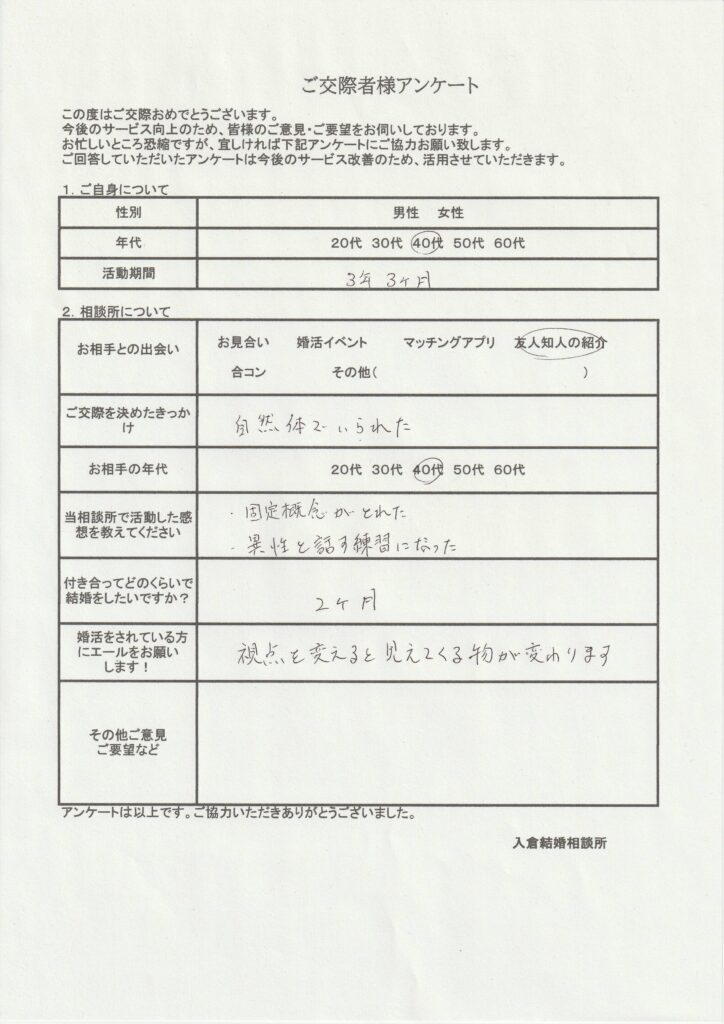 ご交際者様アンケート
この度はご交際おめでとうございます。
今後のサービス向上のため、皆様のご意見・ご要望をお伺いしております。
お忙しいところ恐縮ですが、宜しければ下記アンケートにご協力お願い致します。
ご回答していただいたアンケートは今後のサービス改善のため、活用させていただきます。
1. ご自身について
性別 男性 女性
年代 20代 30代 40代 50代 60代
活動期間 3年3ヶ月
2. 相談所について
お相手との出会い お見合い 婚活イベント マッチングアプリ 友人知人の紹介
合コン その他( )
ご交際を決めたきっか
け
自然体でいられた
お相手の年代 20代 30代 40代 50代 60代
当相談所で活動した感
想を教えてください
・固定概念がとれた
・異性と話す練習になった
付き合ってどのくらいで
結婚をしたいですか?
2ヶ月
婚活をされている方
にエールをお願い
します!
視点を変えると見えてくる物が変わります
その他ご意見
ご要望など
アンケートは以上です。ご協力いただきありがとうございました。
入倉結婚相談所